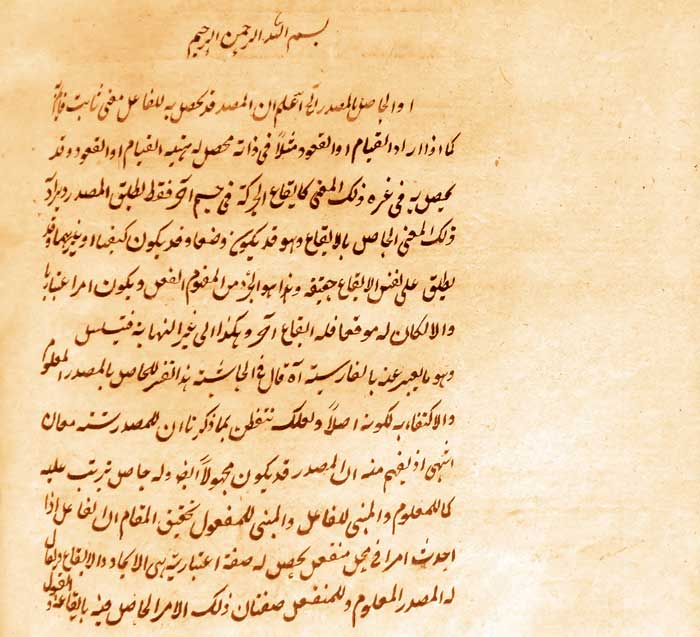 بسم الله الرحمن الرحيم
او الحاصل بالمصدر الخ اعلم ان المصدر قد يحصل به للفاعل معنى ثابت قائم
كما اذا اراد القيام او القعود مثلاً فى ذاته محصل له هيئة القيام او القعود وقد
يحصل به فى غيره ذلك المعنى كايقاع الحركة فى جسم آخر فقط يطلق المصدر ويراد
ذلك المعنى الحاصل بالايقاع وهو قد يكون وضعا وقد يكون كيفا او غيرهما وقد
يطلق على نفس الايقاع حقيقة وهذا هو الجزء من المفهوم الفعل ويكون امرا اعتباريا
والا لكان له موقعا فله ايقاع آخر وهكذا الى غير النهاية فيتسلسل
وهو ما يعبر عنه بالفارسية آه قال فى الحاشية هذا تفسير للحاصل بالمصدر المعلوم
والاكتفاء به لكونه اصلاً ولعلك تتفطن بما ذكرنا ان للمصدر ستة معان
انتهى اذ يفهم منه ان المصدر قد يكون مجهولاً ايضا وله حاصل ترتب عليه
كما للمعلوم والمبنى للفاعل والمبنى للمفعول تحقيق المقام ان الفاعل اذا
احدث امرا فى محل منفعل يحصل له صفة اعتبارية هى الايجاد والايقاع ويقال
له المصدر المعلوم وللمنفعل صفتان ذلك الامر الحاصل فيه بايقاعه